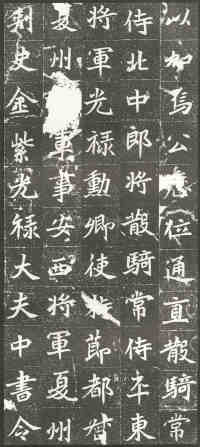 以加焉公位通直散騎常
侍北中郎將散騎常侍平東
將軍光祿勳卿使持節都督
夏州軍事安西將軍夏州
刺史金紫光祿大夫中書令